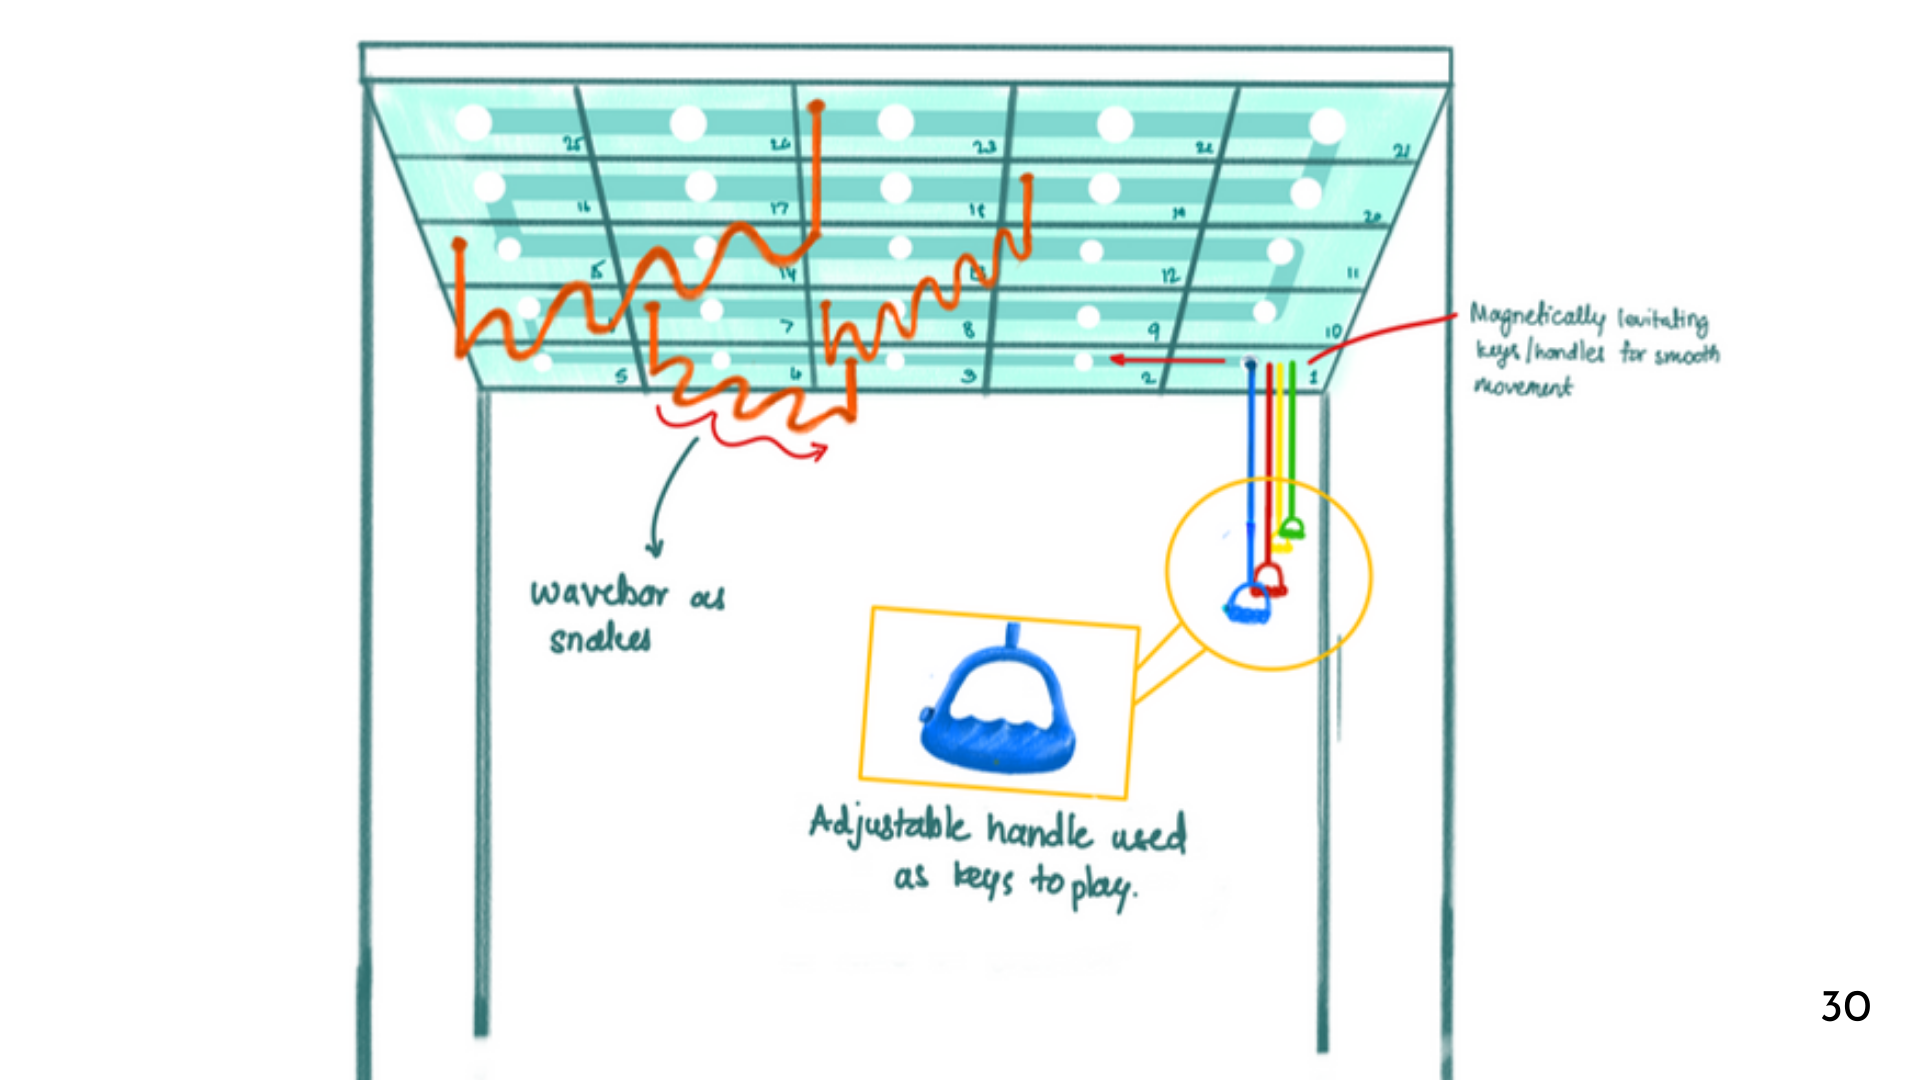 25 24 23 22 21
16 17 18 19 20
15 14 13 12 11
7 8 9 10
5 4 3 2 1
Magnetically levitating
keys/handles for smooth
movement
wavebar as
snakes
Adjustable handle used
as keys to play.
30